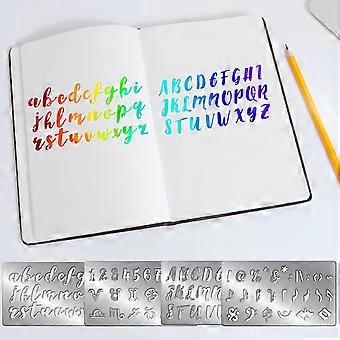 abcdefghi
jklmnopq
rstuvwxyz
ABCDEFGHI
JKLMNOPQR
STUVWXYZ
abcdefghi
jklmnopq
rstuvwxyz
1234567
ABCD
JKLM
STUV